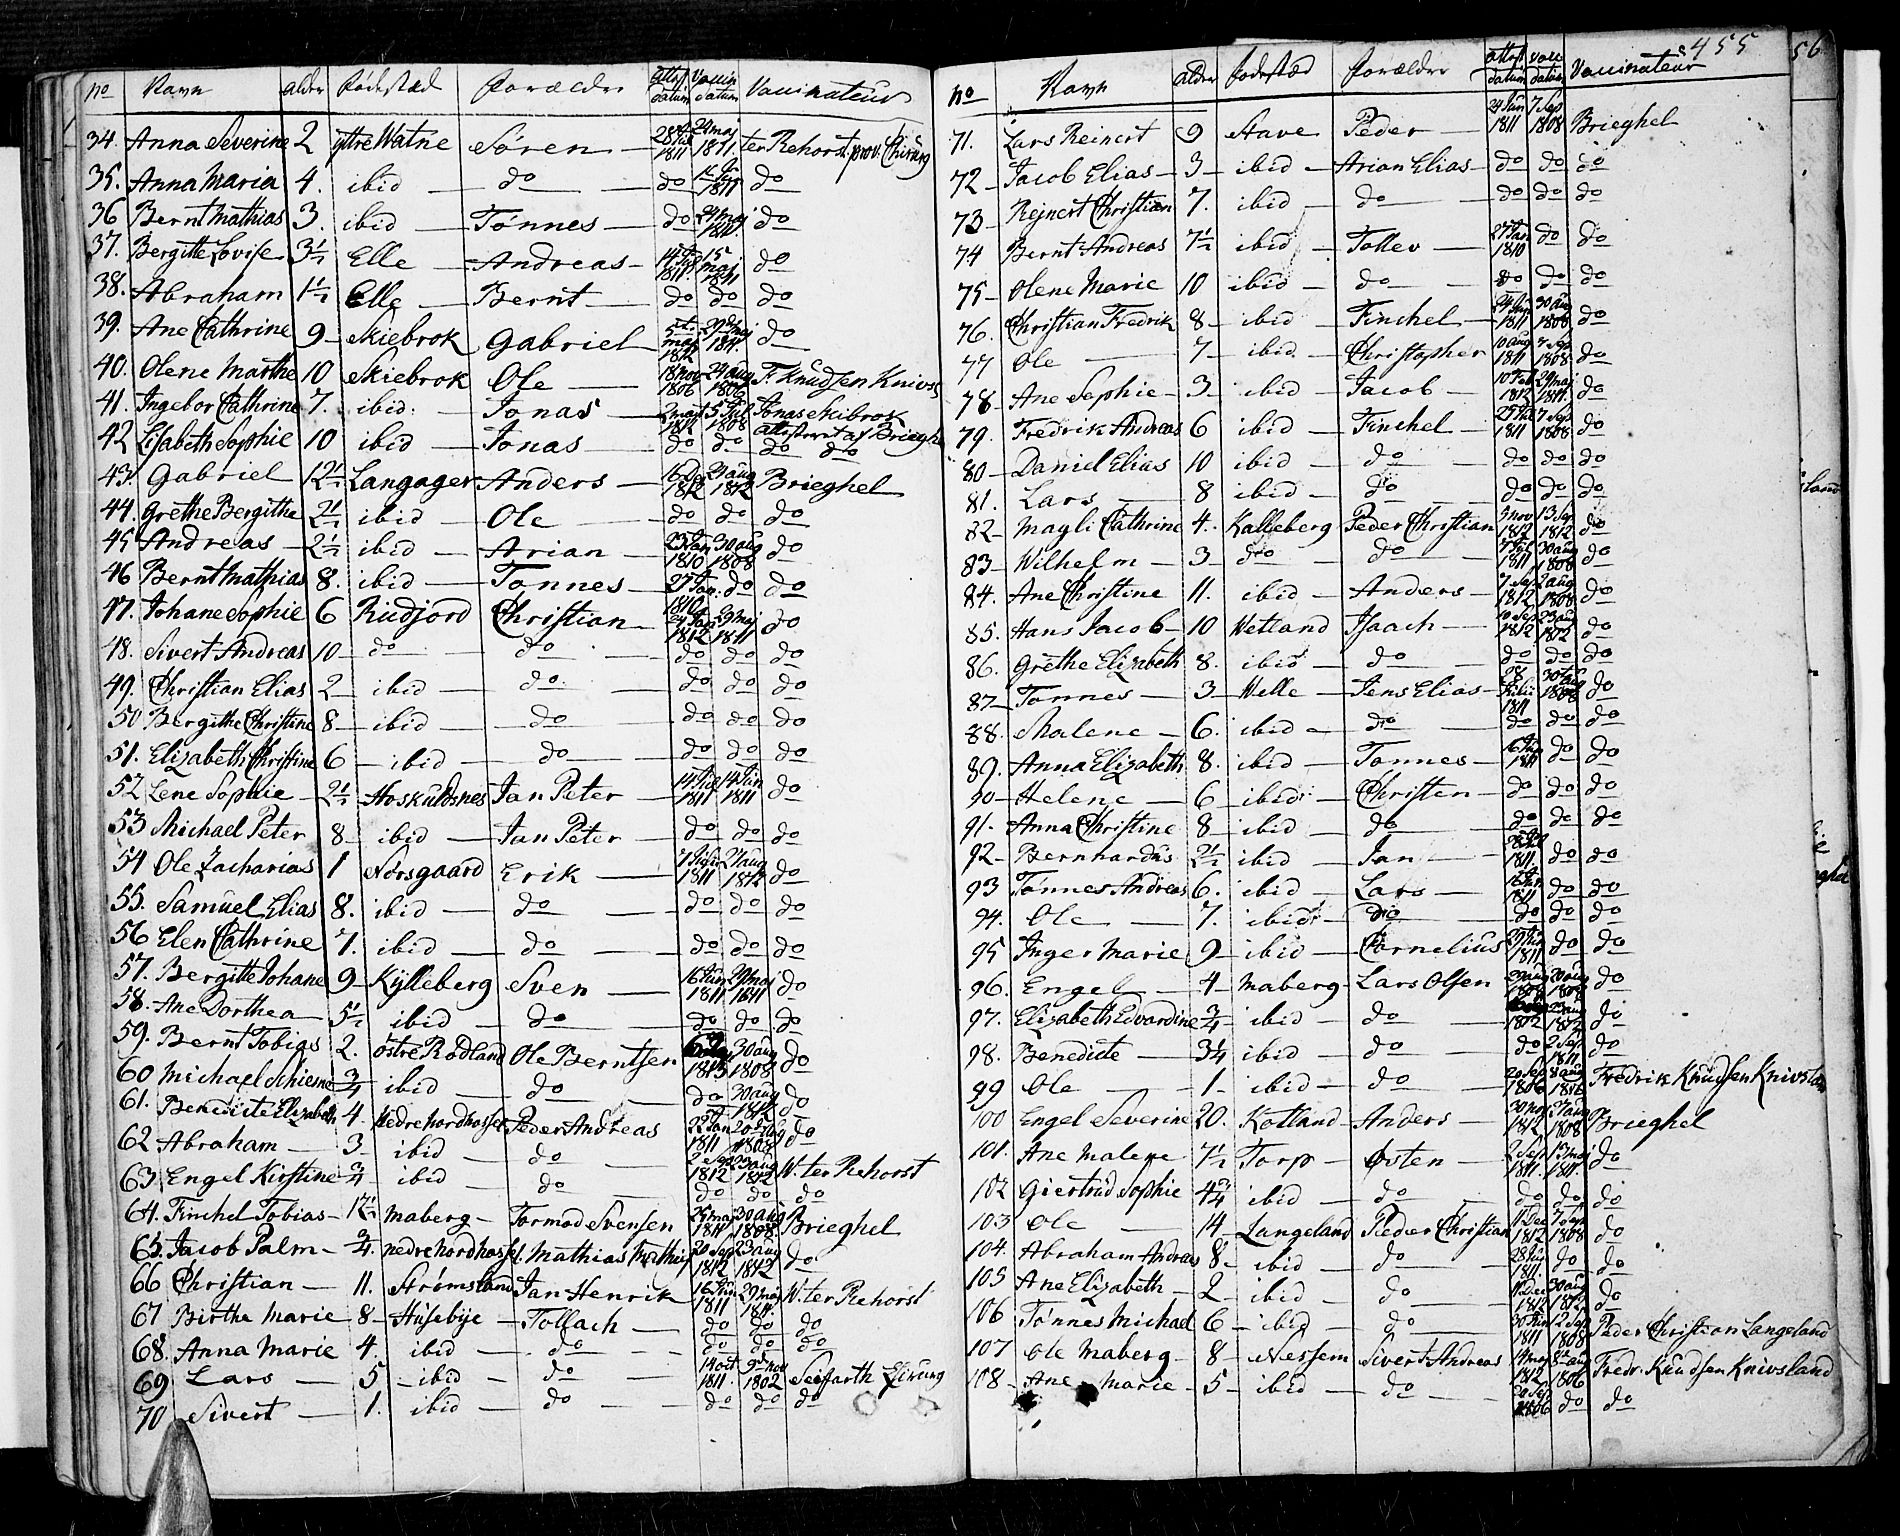 455
56
no Navn alder Fødestæd Forældre attest datum Vaccin datum Vaccinateur
34. Anna Severine 2 ÿttre Watne Sören 1811 24 maj 1811 ter Rehorst prov. Chirurg
35. Anna Maria 4. ibid do do 1811 do
36 Bernt Mathias 3. ibid Tönnes do 24 maj 1811 do
37. Bergitte Lovise 3½ Elle Andreas 1811 15 maj 1811 do
38. Abraham 1½ Elle Bernt do do do
39. Ane Cathrine 9 Skiebrok Gabriel maj 1812 29 maj 1811 do
40. Olene Marthe 10 Skiebrok Ole 18 nov 1806 24 aug 1806 F. Knudsen Knivsl
41. Ingebor Cathrine 7. ibid: Jonas maj 1812 5 Jul 1808 Jonas Skibrok
42 Lisabeth Sophie 10 ibid Jonas do do attesteret af Brieghel do do
43. Gabriel 12½ Langager Anders 1812 21 aug 1812 Brieghel
44. Grethe Bergithe 2½ ibid Ole do do do
45 Andreas 2½ ibid Arian 23 Jan 1810 30 aug 1808 do
46 Bernt Mathias 8. ibid Tonnes 27 Jan: 1810 do do
47. Johane Sophie 6 Rudjord Christian 24 Jan 1812 29 maj 1811 do
48. Sivert Andreas 10 do do do do do
49. Christian Elias 2 ibid do do do do
50 Bergithe Christine 8 ibid do do do do
51. Elizabeth Christine 6 ibid do do do do
52 Lene Sophie 2½ Hoskuldsnes Jan Peter 1811 14 Jun 1811 do
53 Michael Peter 8 ibid Jan Peter do do do
54 Ole Zacharias 1 Norsgaard Erik 1811 27 aug 1812 do
55. Samuel Elias 8. ibid do do do do
56 Elen Cathrine 7. ibid do do do do
57. Bergitte Johane 9 Kÿlleberg Sven 16 Jun 1811 29 maj 1811 do
58. Ane Dorthea 5½ ibid do do do do
59. Bernt Tobias 2. östre Rödland Ole Berntsen 1813 30 aug 1808 do
60 Michael Schieme ¾ ibid do do 30 aug 1812 do
61. Benedicte Elizabeth 4. Nedre Nordhassel Peder Andreas 22 Jan 1811 20 aug 1808 do
62 Abraham 3 ibid do 2 Sep 1812 23 aug 1812 W. ter Rehorst
63 Engel Kirstine ¾ ibid do do do do
64. Finchel Tobias 12½ Maberg Tormod Svensen 25 maj 1811 30 aug 1808 Brieghel
65. Jacob Palm ¾. nedre Nordhassel Mathias 20 Sep 1812 23 aug 1812 do
66 Christian 11. Strömsland Jan Henrik 16 Jun 1811 29 maj 1811 W. ter Rehorst
67 Birthe Marie 8 Husebÿe Tollach do do do
68. Anna Marie 4. ibid do do do do
69 Lars 5 ibid do 14 oct 1811 9 nov 1802 Seifarth Chirurg
70 Sivert 1. ibid do do do do
no Navn alder Fodestæd Forældre attest datum vacc datum Vaccinateur
71. Lars Reinert 9 Stave Peder 24 Jun 1811 7 Sep 1808 Brieghel
72 Jacob Elias 3 ibid Arian Elias do do do
73 Rejnert Christian 7. ibid do do do do
74 Bernt Andreas 7½ ibid Tollev 27 Jan 1810 do do
75 Olene Marie 10 ibid do do do do
76. Christian Fredrik 8 ibid Finchel 24 Jun 1811 30 aug 1808 do
77 Ole 7 ibid Christopher 10 aug 1811 7 Sep 1808 do
78 Ane Sophie 3 ibid Jacob 10 Feb 1812 29 maj 1811 do
79. Fredrik Andreas 6 ibid Finchel 1811 7 Sep 1808 do
80 Daniel Elias 10 ibid do do do do
81. Lars 8 ibid do do do do
82 Magli Cathrine 4. Kalleberg Peder Christian nov 1812 13 Sep 1812 do
83 Wilhelm 3 do do 1811 30 aug 1808 do
84. Ane Christine 11. ibid Anders 7 Sep 1812 2 aug 1808 do
85. Hans Jacob 10 Wetland Isaach 10 Sep 1812 23 aug 1812 do
86. Grethe Elizabeth 8. ibid do do do do
87 Tonnes 3 Welle Jens Elias 28 1811 30 aug do
88. Malene 6. ibid do do do do
89. Anna Elizabeth 8. ibid Tonnes 1811 do do
90 Helene 6 ibid Christen do do do
91. Anna Christine 8 ibid do do do do
92 Bernhardus 2½ ibid Jan 1811 do do
93 Tønnes Andreas 6. ibid Lars 1811 do do
94. Ole 7. ibid do do do do
95 Inger Marie 9 ibid Cornelius 1811 do do
96. Engel 4 Maberg Lars Olsen 1808 30 aug 1808 do
97. Elizabeth Edvardine ¾ ibid do 1812 1812 do
98. Benedicte 3¼ ibid do do 2 Sep 1811 do
99 Ole 1 ibid do 20 Sep 1806 8 aug 1806 Fredrik Knudsen Knivsland
100 Engel Severine 20. Kotland Anders 30 nov 1812 27 aug 1808 Brieghel
101. Ane Malene 7½ Torp Østen 2 Sep 1811 13 maj 1811 do
102 Giertrud Sophie 4¾ ibid do do do do
103 Ole 14 Langeland Peder Christian 11 Dec 1812 7 Sep 1808 do
104. Abraham Andreas 8 ibid do 28 Jun 1811 do do
105 Ane Elizabeth 2 ibid do 11 Dec 1812 30 aug 1812 do
106 Tønnes Michael 6 ibid do 30 Jun 1811 12 Sep 1808 Peder Christian Langeland
107 Ole Maberg 8 Nessem Sivert Andreas 14 maj 1812 8 aug 1806 Fredr. Knudsen Knivsland
108 Ane Marie 5 ibid do 20 Sep 1806 do do